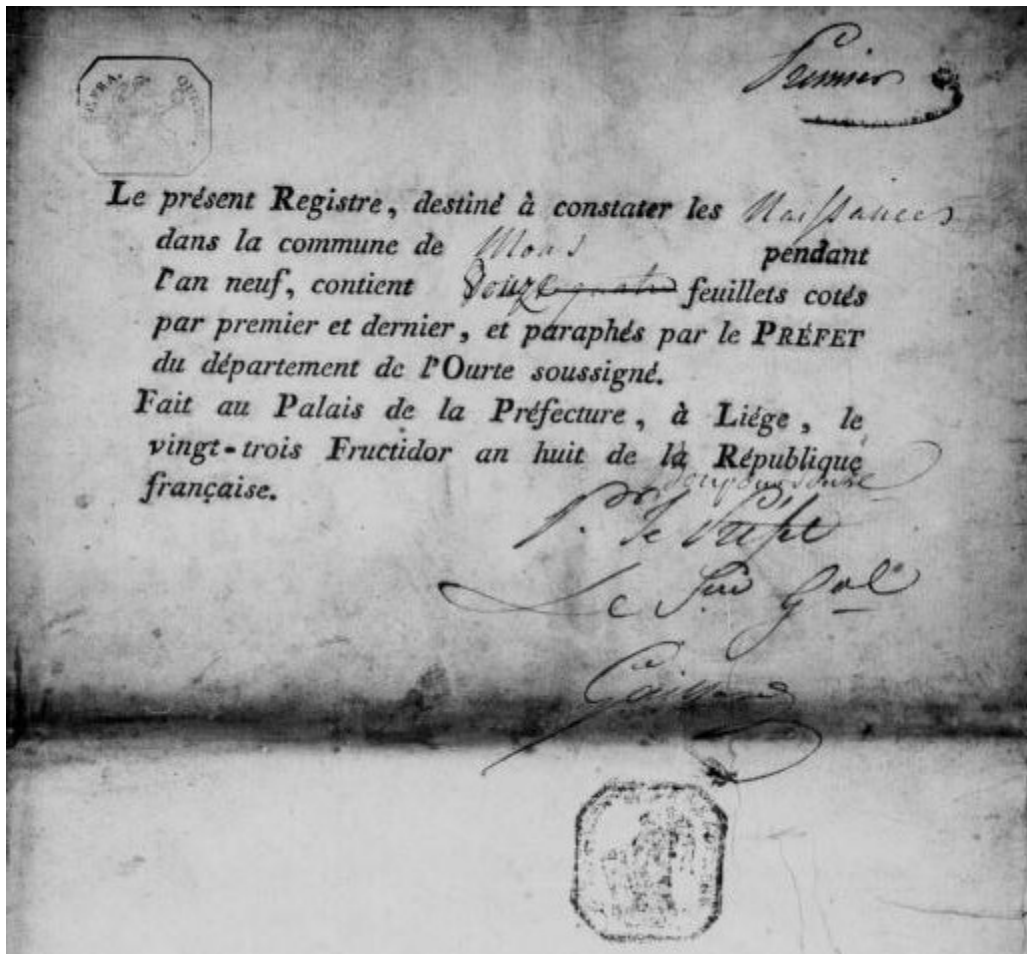 Premier
Le présent Registre, destiné à constater les Naissances
dans la commune de Mons pendant
l'an neuf, contient Douze quatre feuillets cotés
par premier et dernier, et paraphés par le PRÉFET
du département de l'Ourte soussigné.
Fait au Palais de la Préfecture, à Liége, le
vingt-trois Fructidor an huit de la République
française.
Pr. le Préfet
Le Sre Gal